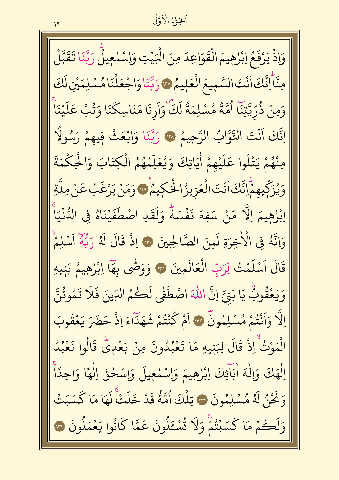 الجزء الاول
وَاِذْ يَرْفَعُ اِبْرٰه۪يمُ الْقَوَاعِدَ مِنَ الْبَيْتِ وَاِسْمٰع۪يلُۜ رَبَّنَا تَقَبَّلْ
مِنَّاۜ اِنَّكَ اَنْتَ السَّم۪يعُ الْعَل۪يمُ ﴿١٢٧﴾ رَبَّنَا وَاجْعَلْنَا مُسْلِمَيْنِ لَكَ
وَمِنْ ذُرِّيَّتِنَٓا اُمَّةً مُسْلِمَةً لَكَۖ وَاَرِنَا مَنَاسِكَنَا وَتُبْ عَلَيْنَاۚ
اِنَّكَ اَنْتَ التَّوَّابُ الرَّح۪يمُ ﴿١٢٨﴾ رَبَّنَا وَابْعَثْ ف۪يهِمْ رَسُولًا
مِنْهُمْ يَتْلُوا عَلَيْهِمْ اٰيَاتِكَ وَيُعَلِّمُهُمُ الْكِتَابَ وَالْحِكْمَةَ
وَيُزَكّ۪يهِمْۜ اِنَّكَ اَنْتَ الْعَز۪يزُ الْحَك۪يمُ ﴿١٢٩﴾ وَمَنْ يَرْغَبُ عَنْ مِلَّةِ
اِبْرٰه۪يمَ اِلَّا مَنْ سَفِهَ نَفْسَهُۜ وَلَقَدِ اصْطَفَيْنَاهُ فِي الدُّنْيَاۚ
وَاِنَّهُ فِي الْاٰخِرَةِ لَمِنَ الصَّالِح۪ينَ ﴿١٣٠﴾ اِذْ قَالَ لَهُ رَبُّهُٓ اَسْلِمْۙ
قَالَ اَسْلَمْتُ لِرَبِّ الْعَالَم۪ينَ ﴿١٣١﴾ وَوَصّٰى بِهَٓا اِبْرٰه۪يمُ بَن۪يهِ
وَيَعْقُوبُۜ يَا بَنِيَّ اِنَّ اللّٰهَ اصْطَفٰى لَكُمُ الدّ۪ينَ فَلَا تَمُوتُنَّ
اِلَّا وَاَنْتُمْ مُسْلِمُونَۜ ﴿١٣٢﴾ اَمْ كُنْتُمْ شُهَدَٓاءَ اِذْ حَضَرَ يَعْقُوبَ
الْمَوْتُۙ اِذْ قَالَ لِبَن۪يهِ مَا تَعْبُدُونَ مِنْ بَعْد۪يۜ قَالُوا نَعْبُدُ
اِلٰهَكَ وَاِلٰهَ اٰبَٓائِكَ اِبْرٰه۪يمَ وَاِسْمٰع۪يلَ وَاِسْحٰقَ اِلٰهًا وَاحِدًاۚ
وَنَحْنُ لَهُ مُسْلِمُونَ ﴿١٣٣﴾ تِلْكَ اُمَّةٌ قَدْ خَلَتْۚ لَهَا مَا كَسَبَتْ
وَلَكُمْ مَا كَسَبْتُمْۚ وَلَا تُسْـَٔلُونَ عَمَّا كَانُوا يَعْمَلُونَ ﴿١٣٤﴾